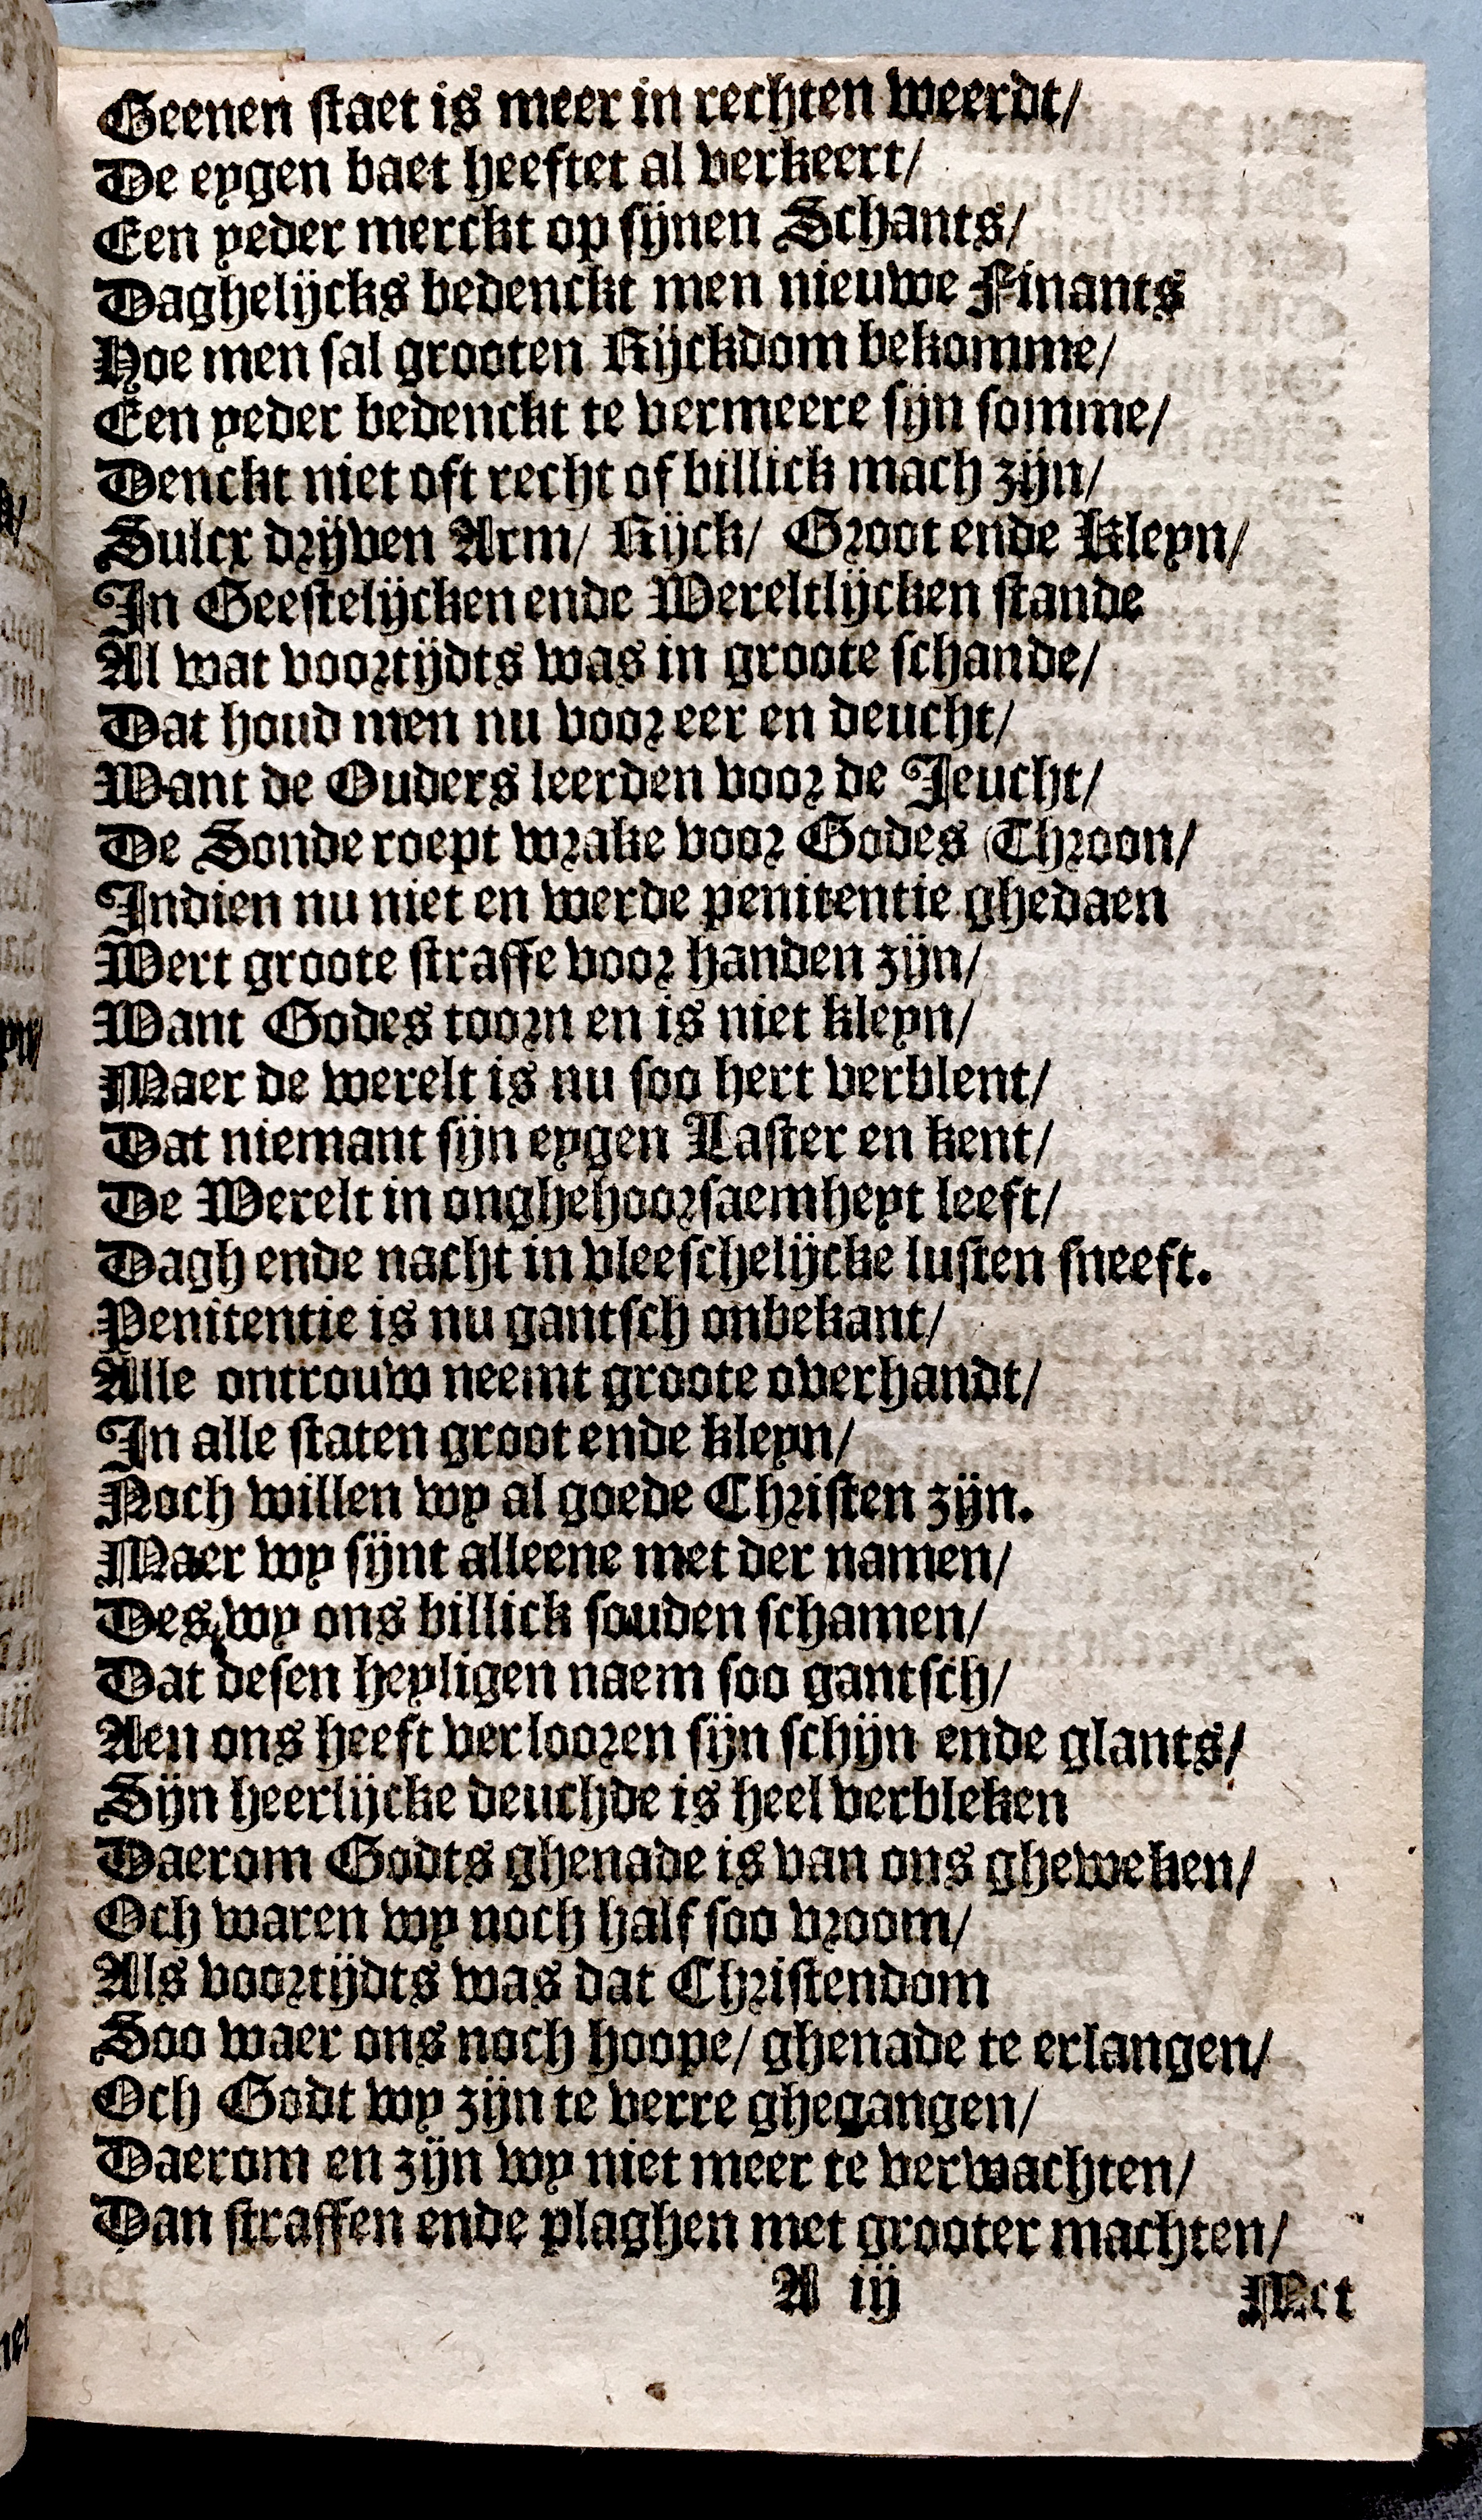 Geenen staet is meer in rechten weerdt/
De eygen baet heeftet al verkeert/
Een yeder merckt op sijnen Schants/
Daghelijcks bedenckt men nieuwe Finants
Hoe men sal grooten Rijckdom bekomme/
Een yeder bedenckt te vermeere sijn somme/
Denckt niet oft recht of billick mach zijn/
Sulcx drijven Arm/ Rijck/ Groot ende Kleyn/
In Geestelijcken ende Wereltlijcken stande
Al wat voortijdts was in groote schande/
Dat houd men nu voor eer en deucht/
Want de Ouders leerden voor de Jeucht/
De Sonde roept wrake voor Godes Throon/
Indien nu niet en werde penitentie ghedaen
Wert groote straffe voor handen zijn/
Want Godes toorn en is niet kleyn/
Maer de werelt is nu soo hert verblent/
Dat niemant sijn eygen Laster en kent/
De Werelt in onghehoorsaemheyt leeft/
Dagh ende nacht in vleeschelijcke lusten sneeft.
Penitentie is nu gantsch onbekant/
Alle ontrouw neemt groote overhandt/
In alle staten groot ende kleyn/
Noch willen wy al goede Christen zijn.
Maer wy sijnt alleene met der namen/
Des wy ons billick souden schamen/
Dat desen heyligen naem soo gantsch/
Aen ons heeft verlooren sijn schijn ende glants/
Sijn heerlijcke deuchde is heel verbleken
Daerom Godts ghenade is van ons gheweken/
Och waren wy noch half soo vroom/
Als voortijdts was dat Christendom
Soo waer ons noch hoope/ ghenade te erlangen/
Och Godt wy zijn te verre ghegangen/
Daerom en zijn wy niet meer te verwachten/
Dan straffen ende plaghen met grooter machten/
A iij Met